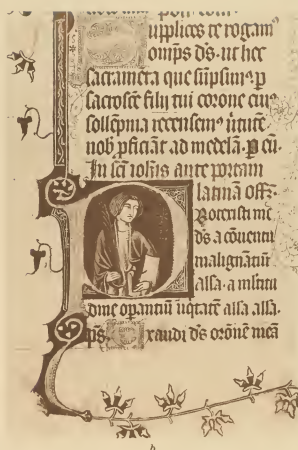 upplices te rogam᷒
omp̄s ds̄. ut hec
sacrameta que sūpsim᷒ ꝑ
sacrosc̄e filij tui corone eiu᷒
sollēpnia recensem᷒ ūtutē
nob̄ ꝓficiāt ad medelā. ꝑ eū.
In sc̄i ioħis ante portam
latinā off
Rotexisti me
ds̄ a cōuentu
malignātiū
alla. a multitu
dine oꝑantiū īiq̄tatē alla alla.
p̄s. Exaudi ds̄ orōnē meā